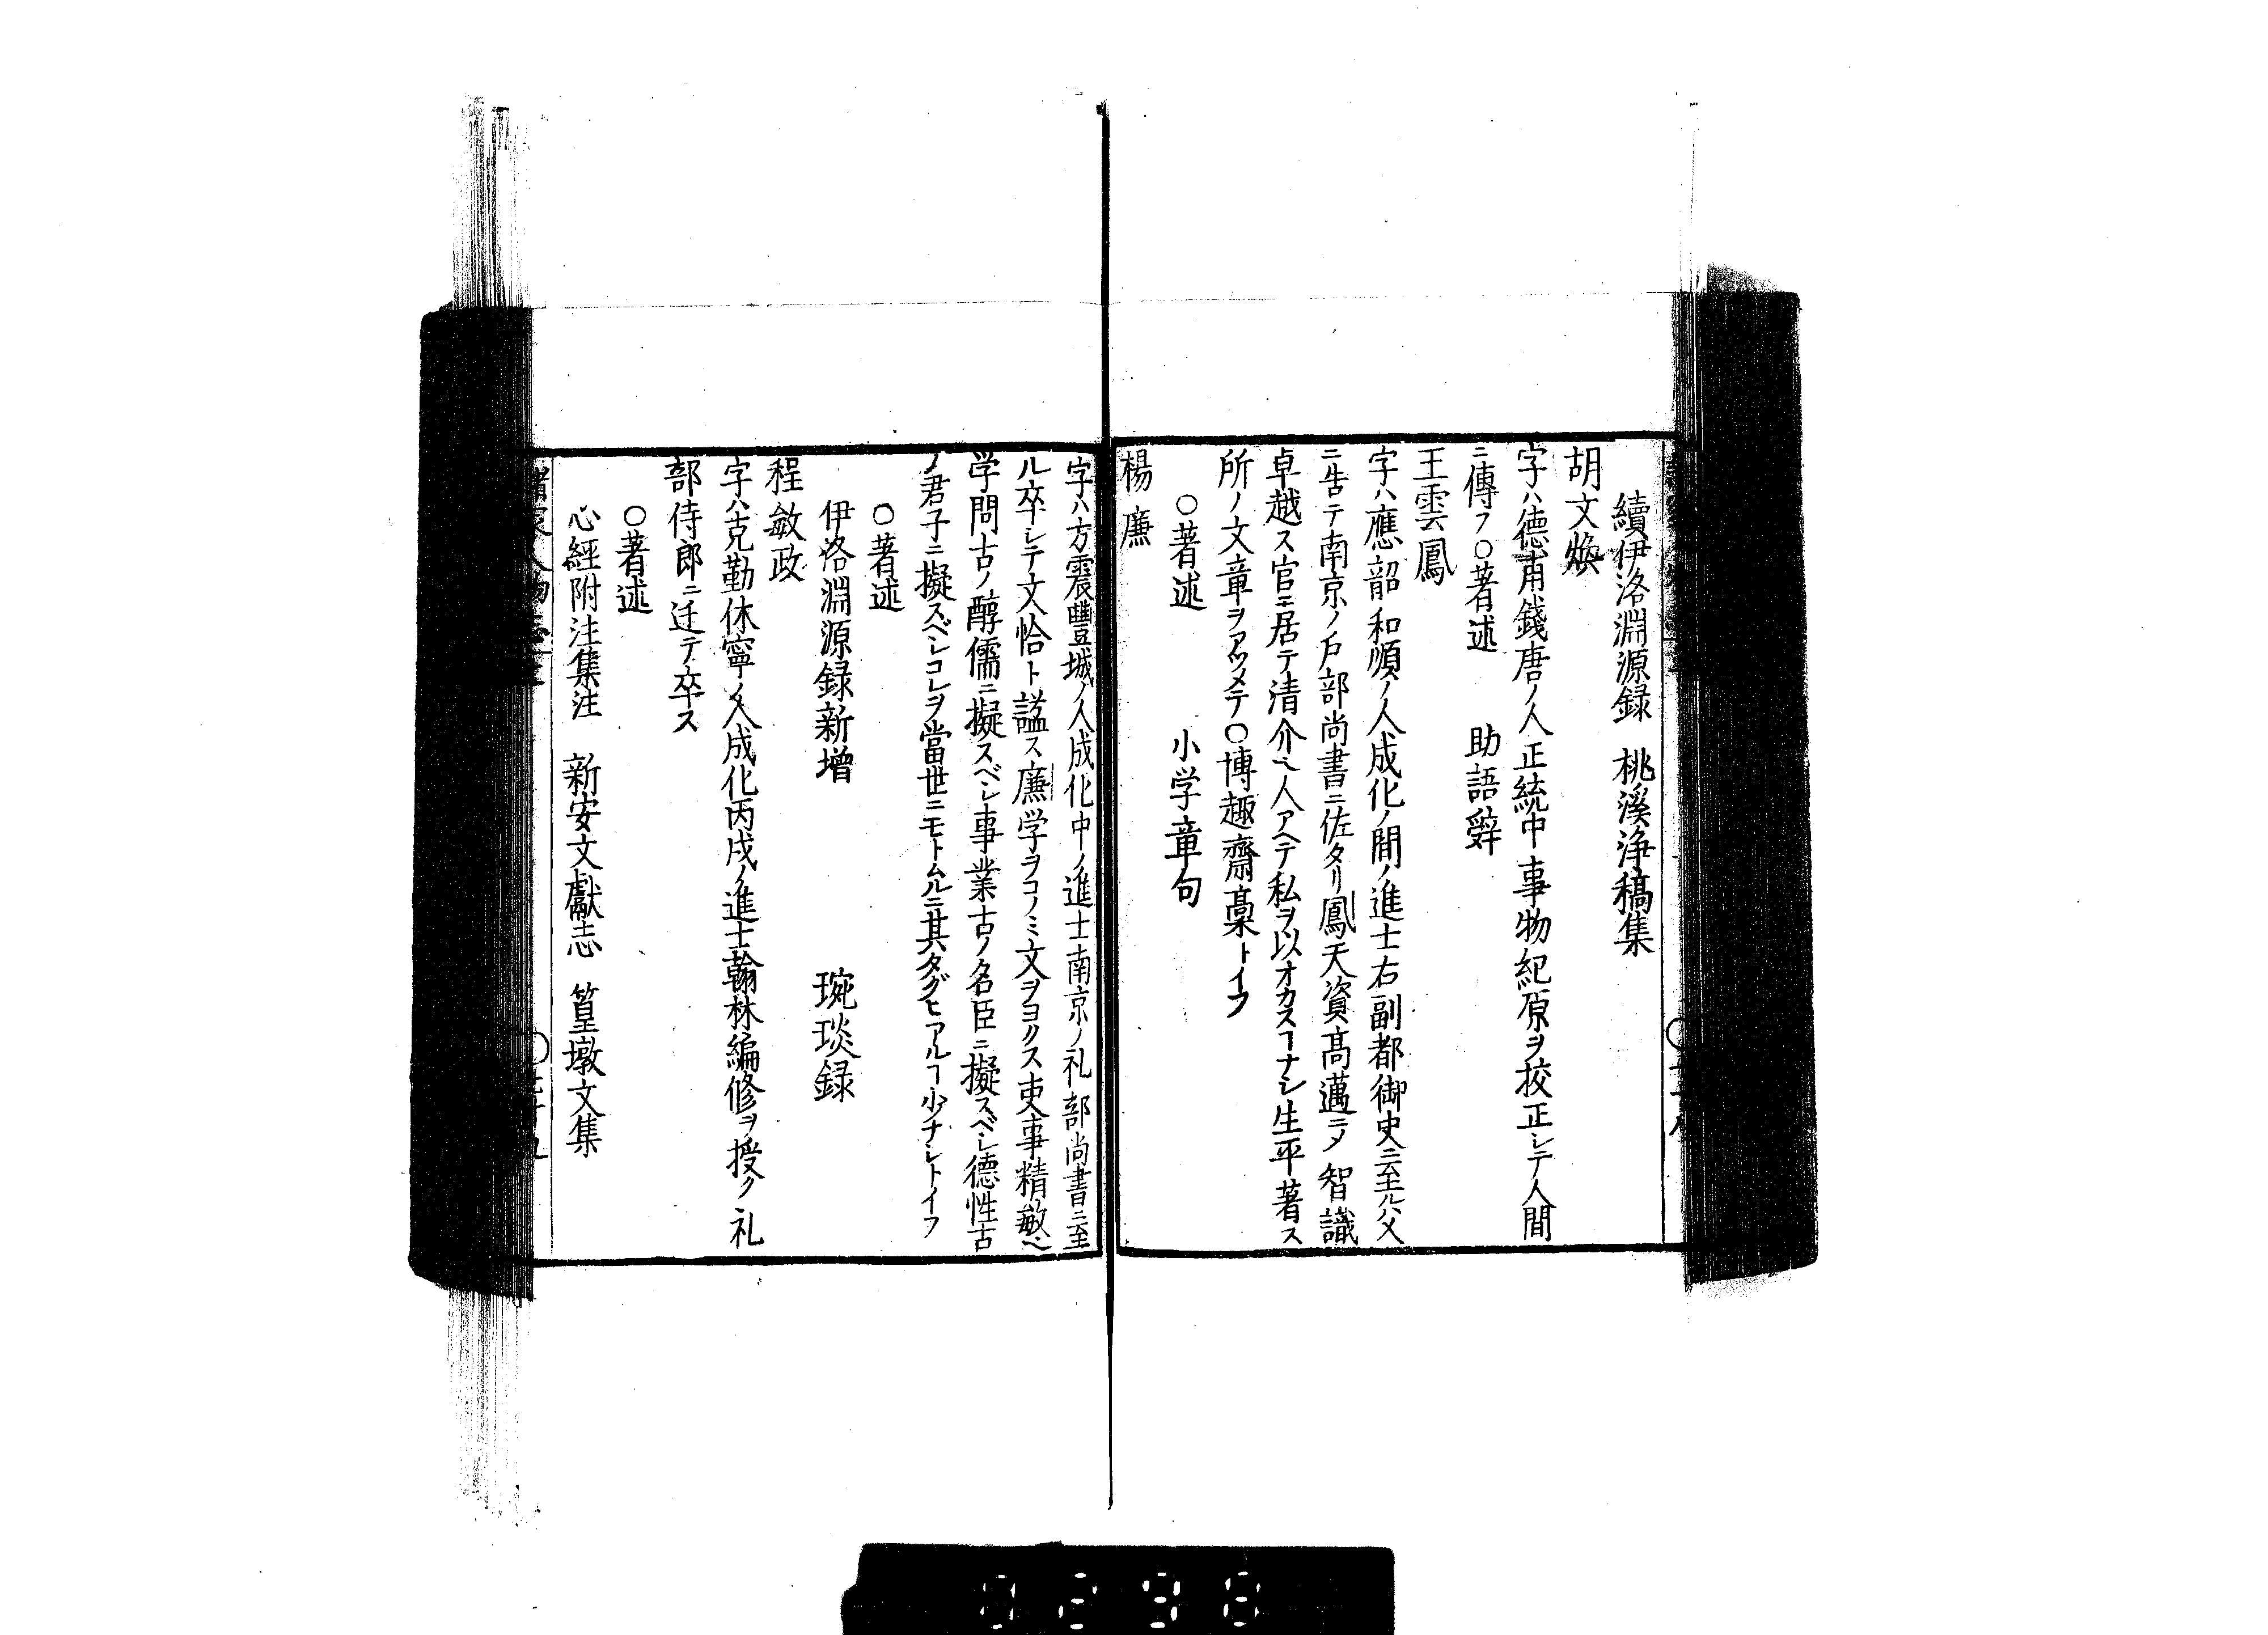 續伊洛淵源録　桃溪浄稿集
胡文煥
字ハ德甫錢唐ノ人正統中事物紀原ヲ挍正シテ人間
ニ傳フ○著述　助語辤
王雲鳳
字ハ應韶和順ノ人成化ノ間ノ進士右副都御史ニ至ル父
ニ告テ南京ノ戸部尚書ニ佐タリ鳳天資髙邁ニメ智識
卓越ス官ニ居テ清介ヘ人アヘテ私ヲ以オカスヿナシ生平著ス
所ノ文章ヲアツメテ○博趣齋藁トイフ
○著述　小学章句
楊廉
字ハ方震豐城ノ人成化中ノ進士南京ノ礼部尚書ニ至
ル卒シテ文恪ト謚ス廉学ヲコノミ文ヲヨクス吏事精敏ヘ
学問古ノ醇儒ニ擬スベシ事業古ノ名臣ニ擬スベシ德性古
ノ君子ニ擬スベシコレヲ當世ニモトムルニ其タグヒアルヿ少ナシトイフ
○著述
伊洛淵源録新增　琬琰録
程敏政
字ハ克勤休寧ノ人成化丙戌ノ進士翰林編修ヲ授ク礼
部侍郎ニ迁テ卒ス
○著述
心經附注集注　新安文獻志　篁墩文集